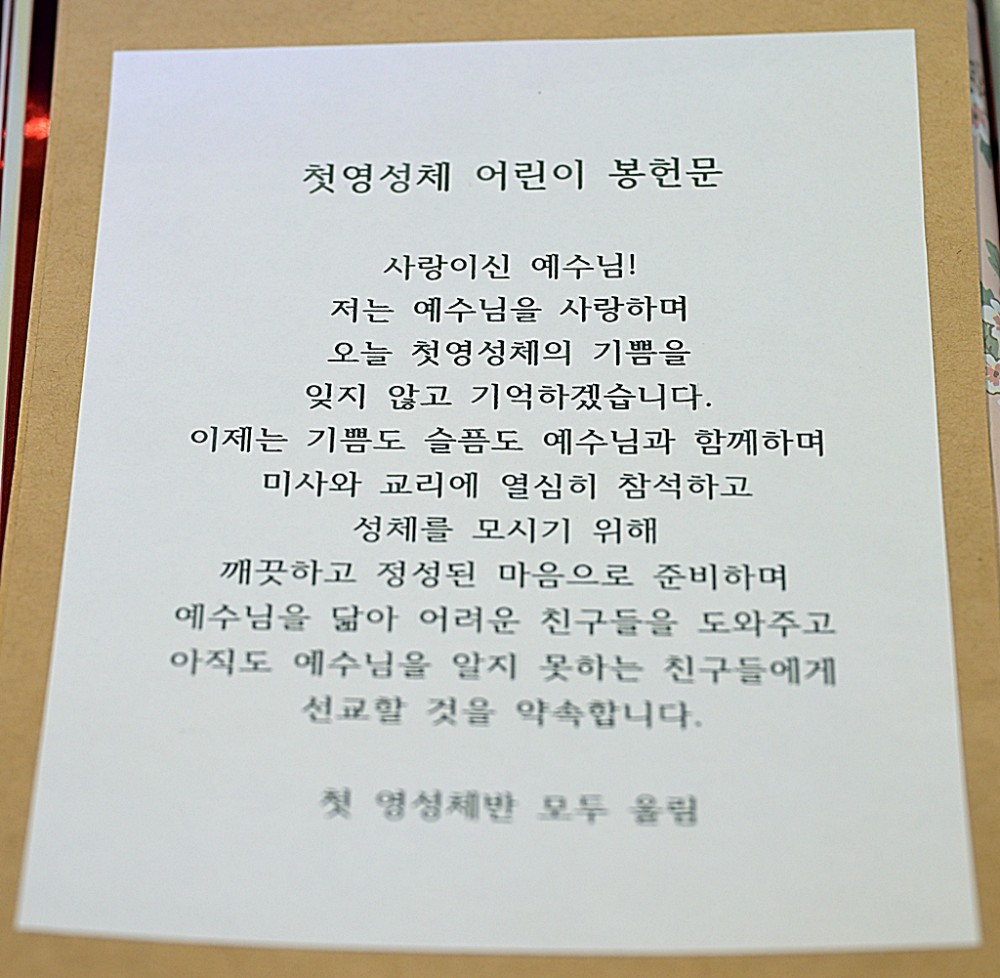 첫영성체 어린이 봉헌문
사랑이신 예수님!
저는 예수님을 사랑하며
오늘 첫영성체의 기쁨을
잊지 않고 기억하겠습니다.
이제는 기쁨도 슬픔도 예수님과 함께하며
미사와 교리에 열심히 참석하고
성체를 모시기 위해
깨끗하고 정성된 마음으로 준비하며
예수님을 닮아 어려운 친구들을 도와주고
아직도 예수님을 알지 못하는 친구들에게
선교할 것을 약속합니다.
첫 영성체반 모두 올림